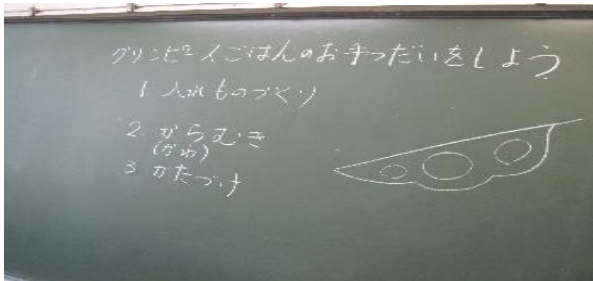 グリンピースごはんのお手つだいをしよう
1 入れものづくり
2 からむき
(かわ)
3 かたづけ